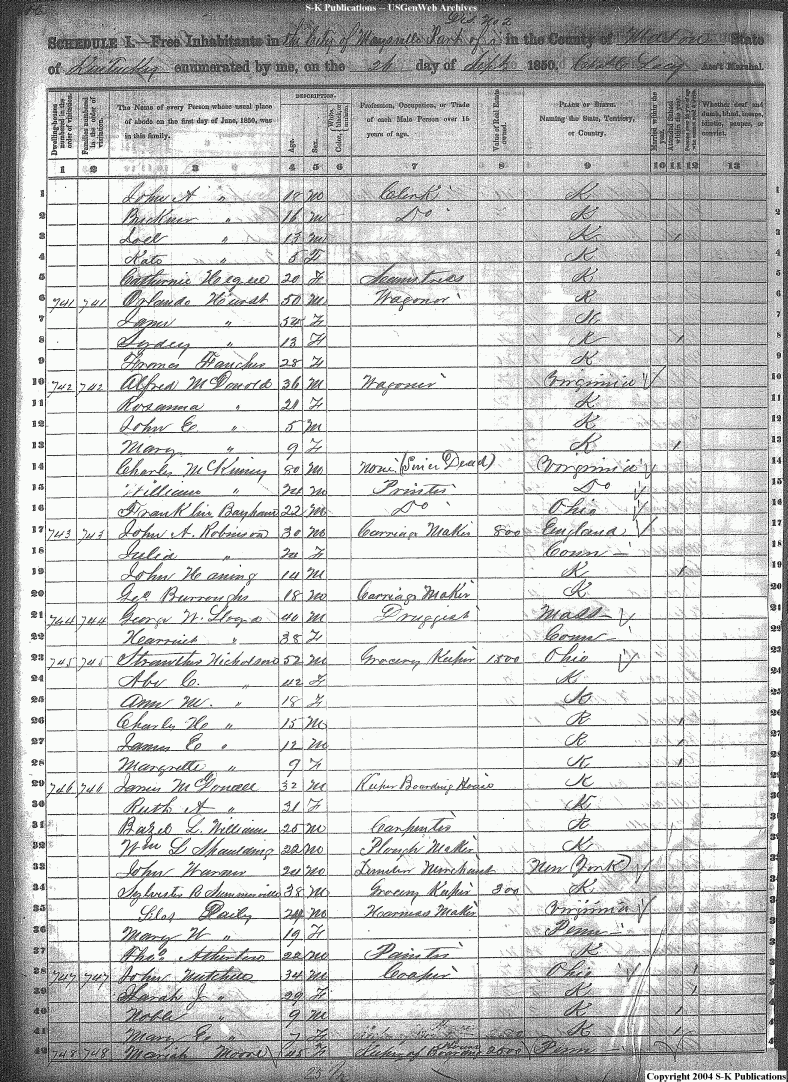 S-K Publications -- USGenWeb Archives
SCHEDULE I.—Free Inhabitants in the City of Maysville Part of in the County of Mason State
of Kentucky enumerated by me, on the 26 day of Sept 1850. Ass't Marshal.
Dwelling-houses numbered in the order of visitation.
Families numbered in the order of visitation.
The Name of every Person whose usual place of abode on the first day of June, 1850, was in this family.
DESCRIPTION.
Age.
Sex.
Color, White, black, or mulatto.
Profession, Occupation, or Trade of each Male Person over 15 years of age.
Value of Real Estate owned.
PLACE OF BIRTH. Naming the State, Territory, or Country.
Married within the year.
Attended School within the year.
Whether deaf and dumb, blind, insane, idiotic, pauper, or convict.
1 2 3 4 5 6 7 8 9 10 11 12 13
1 John A " 18 m Clerk K 1
2 Buckner " 16 m Do K 2
3 Joel " 13 m K 1 3
4 Kate " 5 F K 4
5 Catharine 20 F Seamstress K 5
6 741 741 Orlando Hurst 50 M Wagoner K 6
7 Jane " 54 F K 7
8 Sydney " 13 F K 1 8
9 28 F K 9
10 742 742 Alfred McDonold 36 M Wagoner Virginia 10
11 Rosanna " 21 F K 11
12 John C " 5 M K 12
13 Mary " 9 F K 1 13
14 Charles McKinny 80 M None Virginia 14
15 William " 24 M Printer Do 15
16 Franklin 22 M Do Ohio 16
17 743 743 John A. Robinson 30 M Carriage Maker 800 England 17
18 Julia " 24 F Conn 18
19 John Haning 14 M K 1 19
20 Geo Burroughs 18 M Carriage Maker K 20
21 744 744 George W. 40 M Druggist Mass 21
22 Harriet " 38 F Conn 22
23 745 745 Nicholson 52 M Grocery Keeper 1500 Ohio 23
24 C. " 42 F K 24
25 Ann M. " 18 F K 25
26 Charles H " 15 M K 1 26
27 James C " 12 M K 1 27
28 Margrette " 9 F K 1 28
29 746 746 James 32 M Keeper Boarding House K
30 Ruth A " 31 F K
31 Bazel L. Williams 25 M Carpenter K
32 Wm L Spaulding 22 M Plough Maker K
33 John Warner 24 M Merchant New York
34 Sylvester B Summerville 38 M Grocery Keeper 300 K
35 Silas Daily 24 M Harness Maker Virginia
36 Mary W " 19 F Penn
37 Thos Atherton 22 M Painter K
38 747 747 John Mitchell 34 M Cooper Ohio 1
39 Sarah J " 29 F K 1
40 Noble " 9 M K 1
41 Mary C " 7 F K 1
42 748 748 Mariah Moore 45 F 2500 Penn
Copyright 2004 S-K Publications